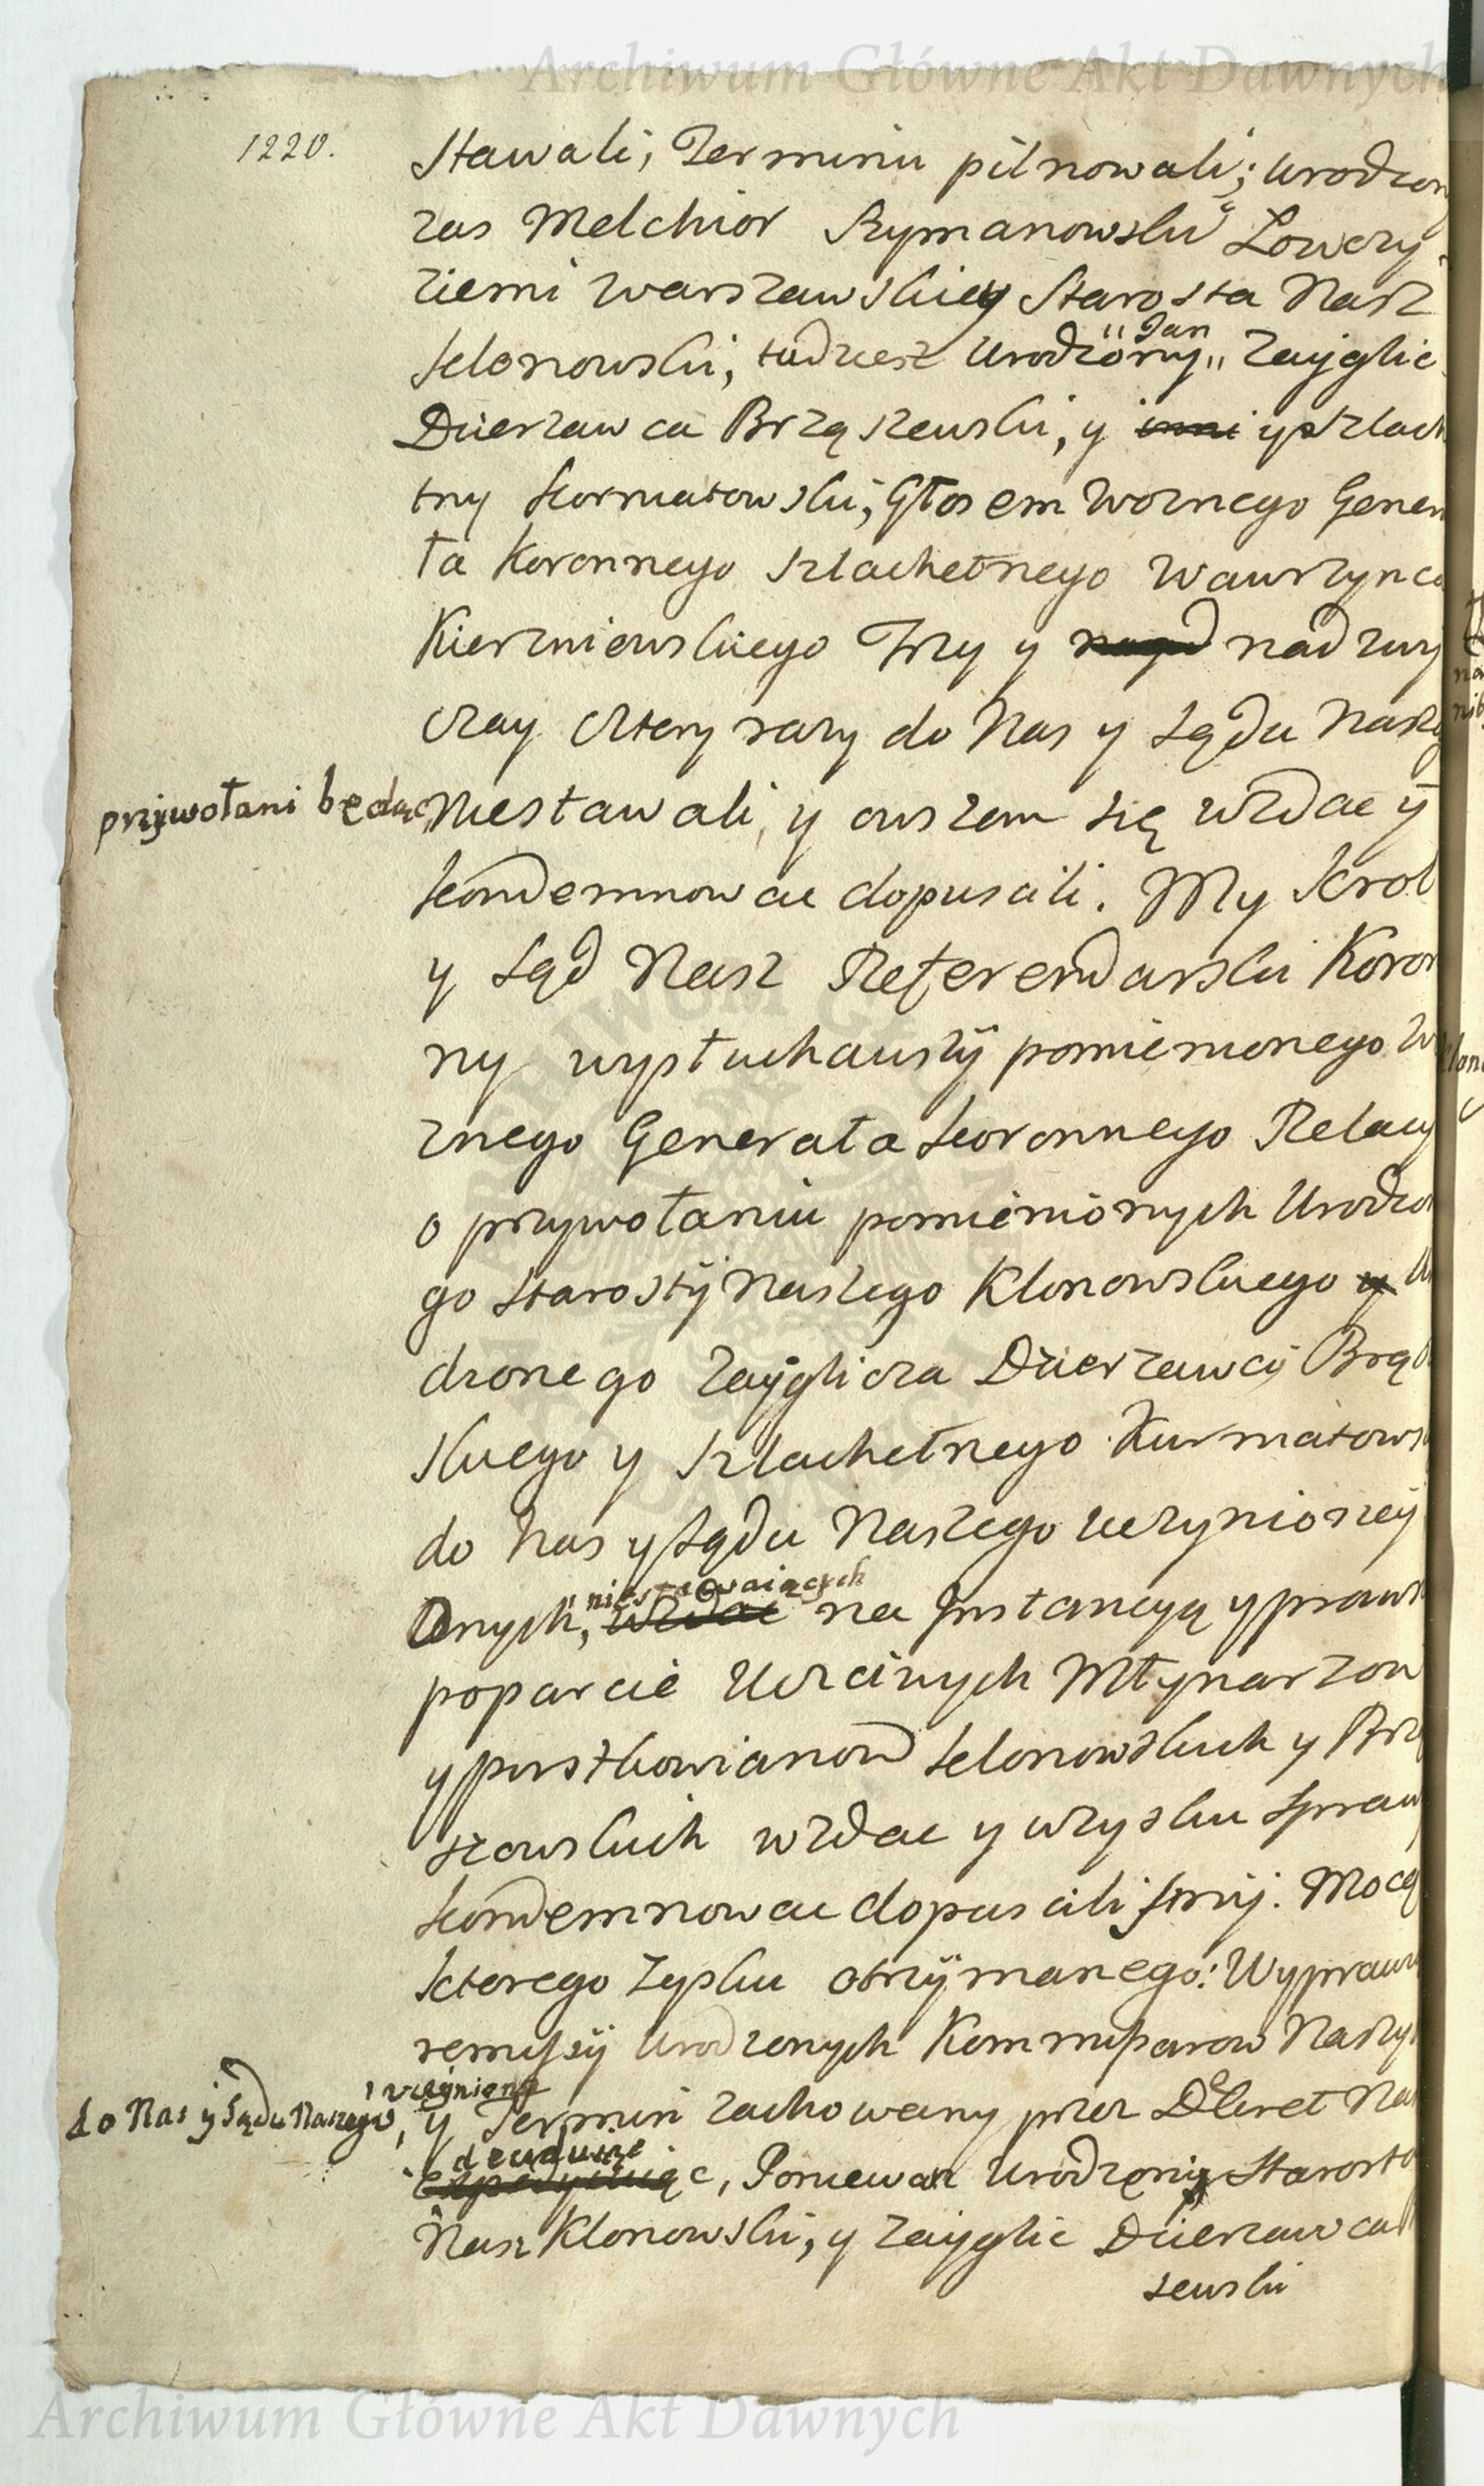 Archiwum Główne Akt Dawnych
1220.
Stawali, Terminu pilnowali; Urodzon
zas Melchior Szymanowski Łowczy
ziemi Warszawskiey Starosta Nasz
Klonowski, tudziesz Urodzony "Jan" Zayglic
Dzierzawca Brząszewski, y inni y Szlach
tny Kormatowski, Głosem Woznego Gener
ła Koronnego Szlachetnego Wawrzynca
Kierzniewskiego Trzy y nadzwy
czay cztery razy do Nas y Sądu Naszeg
przywołani będąc, Niestawali, y owszem się wzdac y
kondemnowac dopuscili. My Krol
y Sąd Nasz Referendarski Koron
ny wysłuchawszy pomienionego Wo
znego Generała Koronnego Relacy
o przywołaniu pomienionych Urodzo
go Starosty Naszego Klonowskiego y U
dzonego Zayglicza Dzierzawcy Brą
skiego y Szlachetnego Kurmatows
do Nas y Sądu Naszego uczynioney
Onych, "niestawaiących wzdac na Instancyą y prawn
poparcie Uczciwych Młynarzow
y pustkowianow Klonowskich y Brz
szowskich wzdac y wzysku Spraw
kondemnowac dopuscilismy. Mocą
ktorego Zysku otrzymanego: Wyprawu
remissy Urodzonych Kommissarow Naszy
do Nas y Sądu Naszego, uczynioną y Termin zachowany przez Dekret Na
c, Poniewaz Urodzony Starosta
Nasz Klonowski, y Zayglic Dzierzawca
szewski
Archiwum Główne Akt Dawnych